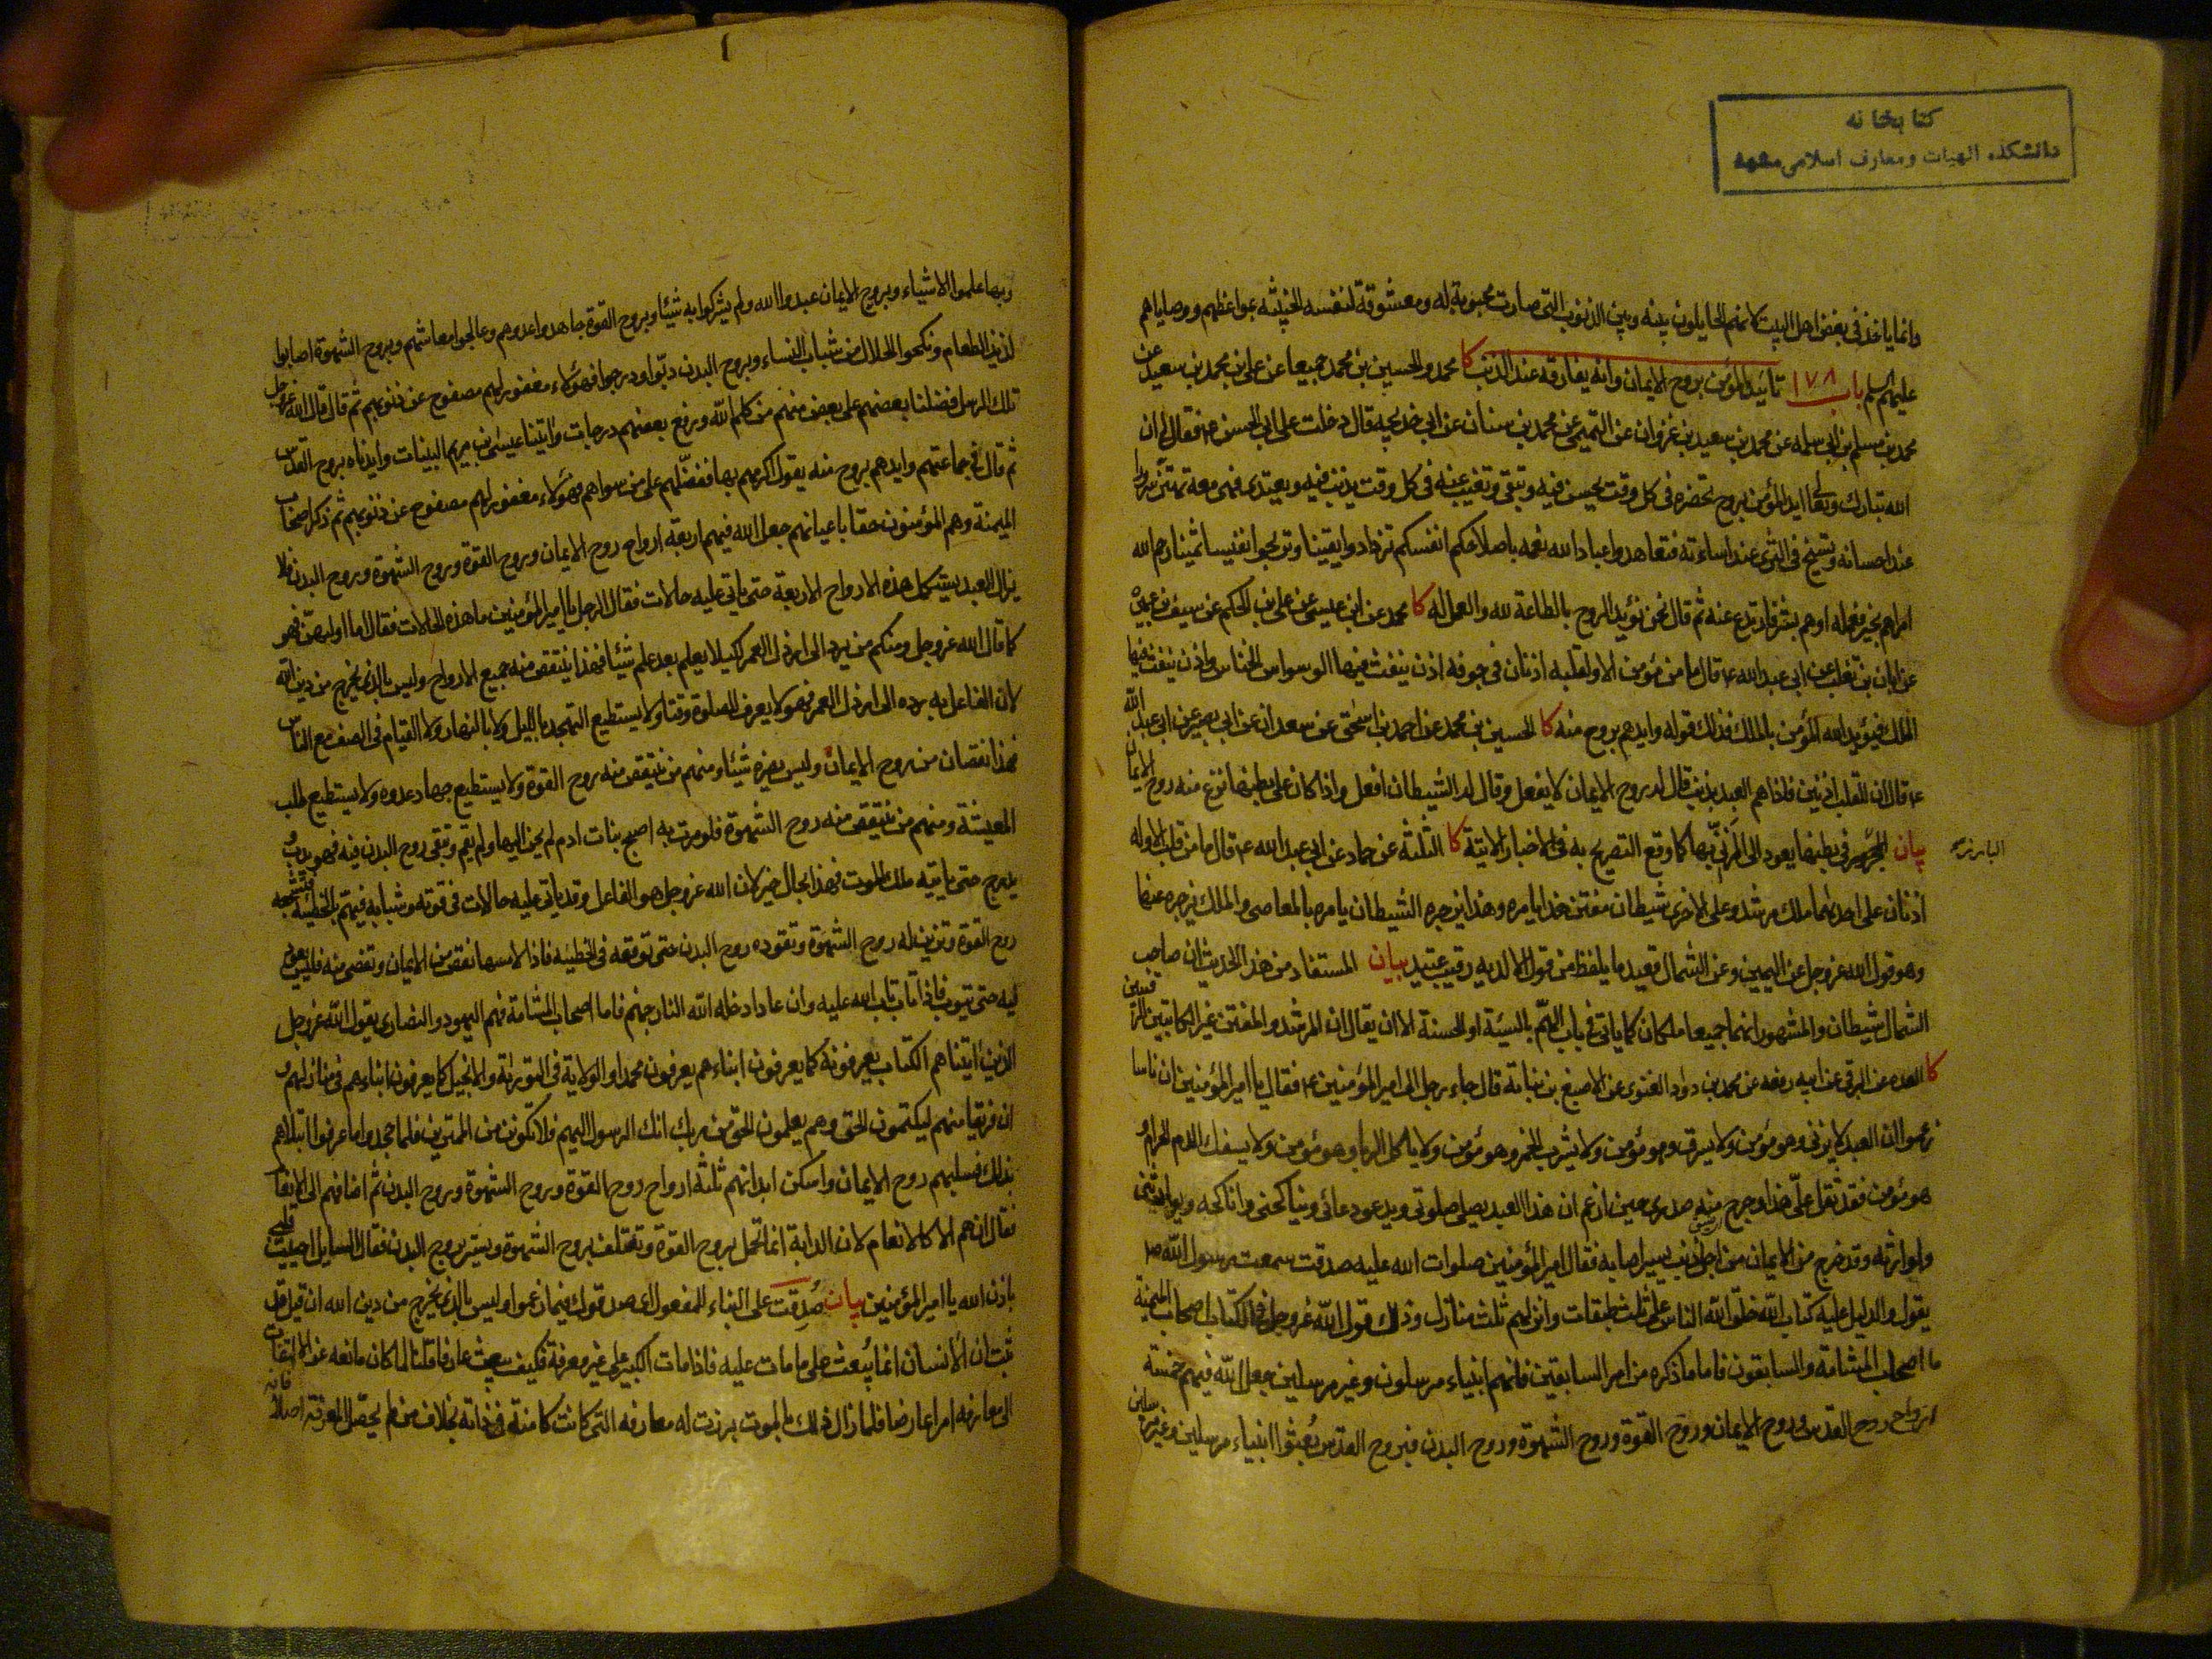 كتابخانه
دانشكده الهيات ومعارف اسلامى مشهد
وانما ياخذ فى بغض اهل البيت لانهم الحايلون بينه وبين الذنوب التى صارت محبوبة له ومعشوقة لنفسه الخبيثة بمواعظهم ووصاياهم
عليهم السلم باب ١٧٨ تاييد المؤمن بروح الايمان وانه يفارقه عند الذنب كا محمد والحسين بن محمد جميعا عن على بن محمد بن سعيد عن
محمد بن مسلم بن ابى سلمه عن محمد بن سعيد بن غزوان عن التميمى عن محمد بن سنان عن ابى خديجه قال دخلت على ابى الحسن ع فقال لى ان
الله تبارك وتعالى ايد المؤمن بروح تحضره فى كل وقت يحسن فيه ويتقى وتغيب عنه فى كل وقت يذنب فيه ويعتدى فهى معه تهتز سرورا
عند احسانه وتسيخ فى الثرى عند اساءته فتعاهدوا عباد الله نعمه باصلاحكم انفسكم تزدادوا يقينا وتربحوا نفيسا ثمينا رحم الله
امرا هم بخير فعمله او هم بشر فارتدع عنه ثم قال نحن نؤيد الروح بالطاعة لله والعمل له كا محمد عن ابن عيسى عن على بن الحكم عن سيف بن عميرة
عن ابان بن تغلب عن ابى عبد الله ع قال ما من مؤمن الا ولقلبه اذنان فى جوفه اذن ينفث فيها الوسواس الخناس واذن ينفث فيها
الملك فيؤيد الله المؤمن بالملك فذلك قوله وايدهم بروح منه كا الحسين بن محمد عن احمد بن اسحق عن سعدان عن ابى بصير عن ابى عبد الله
ع قال ان للقلب اذنين فاذا هم العبد بذنب قال له روح الايمان لا تفعل وقال له الشيطان افعل واذا كان على بطنها نزع منه روح الايمان
بيان المجرور فى بطنها يعود الى المزنى بها كما وقع التصريح به فى الاخبار الاتية كا الثلثة عن حماد عن ابى عبد الله ع قال ما من قلب الا وله
اذنان على احديهما ملك مرشد وعلى الاخرى شيطان مفتن هذا يامره وهذا يزجره الشيطان يامره بالمعاصى والملك يزجره عنها
وهو قول الله عز وجل عن اليمين وعن الشمال قعيد ما يلفظ من قول الا لديه رقيب عتيد بيان المستفاد من هذا الحديث ان صاحب
الشمال شيطان والمشهور انهما جميعا ملكان كما ياتى فى باب الهم بالسيئة او الحسنة الا ان يقال ان المرشد والمفتن غير الكاتبين الرقيبين
كا العدة عن البرقى عن ابيه رفعه عن محمد بن داود الغنوى عن الاصبغ بن نباتة قال جاء رجل الى امير المؤمنين ع فقال يا امير المؤمنين ان ناسا
زعموا ان العبد لا يزنى وهو مؤمن ولا يسرق وهو مؤمن ولا يشرب الخمر وهو مؤمن ولا ياكل الربا وهو مؤمن ولا يسفك الدم الحرام و
هو مؤمن فقد ثقل على هذا وحرج منه صدرى حين ازعم ان هذا العبد يصلى صلوتى ويدعو دعائى ويناكحنى واناكحه ويوارثنى
واوارثه وقد خرج من الايمان من اجل ذنب يسير اصابه فقال امير المؤمنين صلوات الله عليه صدقت سمعت رسول الله ص
يقول والدليل عليه كتاب الله خلق الله الناس على ثلث طبقات وانزلهم ثلث منازل وذلك قول الله عز وجل فى الكتاب اصحاب الميمنة
واصحاب المشامة والسابقون فاما ما ذكره من امر السابقين فانهم انبياء مرسلون وغير مرسلين جعل الله فيهم خمسة
ارواح روح القدس وروح الايمان وروح القوة وروح الشهوة وروح البدن فبروح القدس بعثوا انبياء مرسلين وغير مرسلين
وبها علموا الاشياء وبروح الايمان عبدوا الله ولم يشركوا به شيئا وبروح القوة جاهدوا عدوهم وعالجوا معاشهم وبروح الشهوة اصابوا
لذيذ الطعام ونكحوا الحلال من شباب النساء وبروح البدن دبوا ودرجوا فهؤلاء مغفور لهم مصفوح عن ذنوبهم ثم قال قال الله عز وجل
تلك الرسل فضلنا بعضهم على بعض منهم من كلم الله ورفع بعضهم درجات واتينا عيسى بن مريم البينات وايدناه بروح القدس
ثم قال فى جماعتهم وايدهم بروح منه يقول اكرمهم بها ففضلهم على من سواهم فهؤلاء مغفور لهم مصفوح عن ذنوبهم ثم ذكر اصحاب
الميمنة وهم المؤمنون حقا باعيانهم جعل الله فيهم اربعة ارواح روح الايمان وروح القوة وروح الشهوة وروح البدن فلا
يزال العبد يستكمل هذه الارواح الاربعة حتى ياتى عليه حالات فقال الرجل يا امير المؤمنين ما هذه الحالات فقال اما اوليهن فهو
كما قال الله عز وجل ومنكم من يرد الى ارذل العمر لكيلا يعلم بعد علم شيئا فهذا ينتقص منه جميع الارواح وليس بالذى يخرج من دين الله
لان الفاعل به رده الى ارذل العمر فهو لا يعرف للصلوة وقتا ولا يستطيع التهجد بالليل ولا بالنهار ولا القيام فى الصف مع الناس
فهذا نقصان من روح الايمان وليس يضره شيئا ومنهم من ينتقص منه روح القوة ولا يستطيع جهاد عدوه ولا يستطيع طلب
المعيشة ومنهم من ينتقص منه روح الشهوة فلو مرت به اصبح بنات ادم لم يحن اليها ولم يقم وتبقى روح البدن فيه فهو يدب و
يدرج حتى ياتيه ملك الموت فهذا بحال خير لان الله عز وجل هو الفاعل وقد ياتى عليه حالات فى قوته وشبابه فيهم بالخطيئة فيشجعه
روح القوة وتزين له روح الشهوة وتقوده روح البدن حتى توقعه فى الخطيئة فاذا لامسها نقص من الايمان وتفصى منه فليس يعود
فيه حتى يتوب فاذا تاب تاب الله عليه وان عاد ادخله الله النار جهنم فاما اصحاب المشامة فهم اليهود والنصارى يقول الله عز وجل
الذين اتيناهم الكتاب يعرفونه كما يعرفون ابناءهم يعرفون محمدا والولاية فى التورية والانجيل كما يعرفون ابناءهم فى منازلهم و
ان فريقا منهم ليكتمون الحق وهم يعلمون الحق من ربك انك الرسول اليهم فلا تكونن من الممترين فلما جحدوا ما عرفوا ابتلاهم
بذلك فسلبهم روح الايمان واسكن ابدانهم ثلثة ارواح روح القوة وروح الشهوة وروح البدن ثم اضافهم الى الانعام
فقال ان هم الا كالانعام لان الدابة انما تحمل بروح القوة وتعتلف بروح الشهوة وتسير بروح البدن فقال السايل احييت قلبى
باذن الله يا امير المؤمنين بيان صدقت على البناء للمفعول اى صدقوك فيما زعموا وليس بالذى يخرج من دين الله ان قيل قد
ثبت ان الانسان انما يبعث على ما مات عليه فاذا مات الكبير على غير معرفة فكيف يبعث عارفا قلنا لما كان مانعه عن الالتفات
الى معارفه امرا عارضا فلما زال ذلك بالموت برزت له معارفه التى كانت كامنة فى ذاته بخلاف من لم يحصل المعرفة اصلا فانه